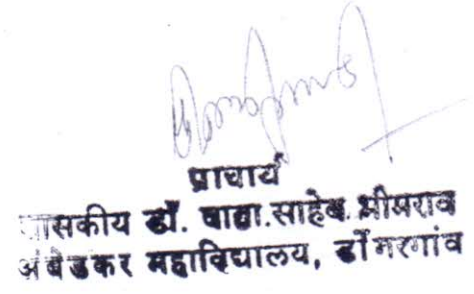 प्राचार्य
शासकीय डॉ. बाबा.साहेब भीमराव
अंबेडकर महाविद्यालय, डोंगरगांव